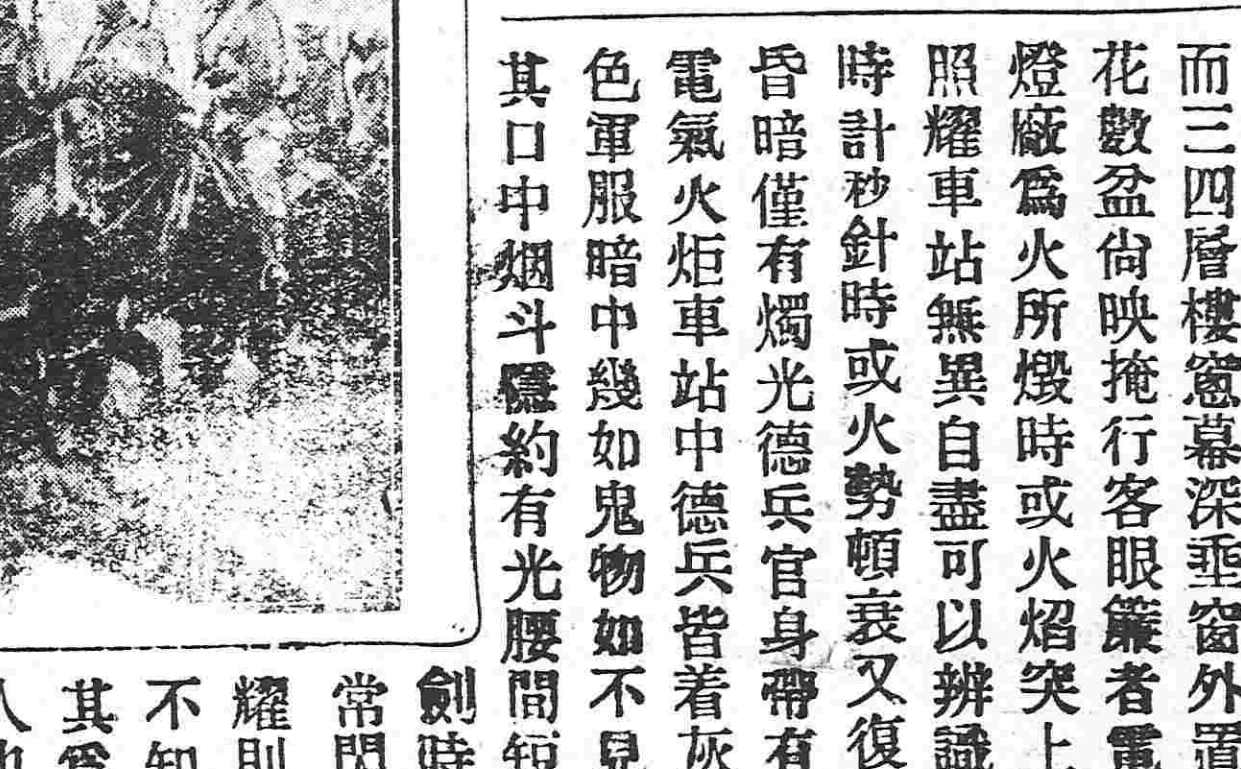 而三四層樓窗幕深垂窗外置
花數盆尙映掩行客眼簾者電
燈廠爲火所燬時或火焰突上
照耀車站無異自盡可以辨識
時計秒針時或火勢頓衰又復
昏暗僅有燭光德兵官身帶有
電氣火炬車站中德兵皆着灰
色軍服暗中幾如鬼物如不見
其口中烟斗隱約有光腰間短
劍時
常閃
耀則
不知
其爲